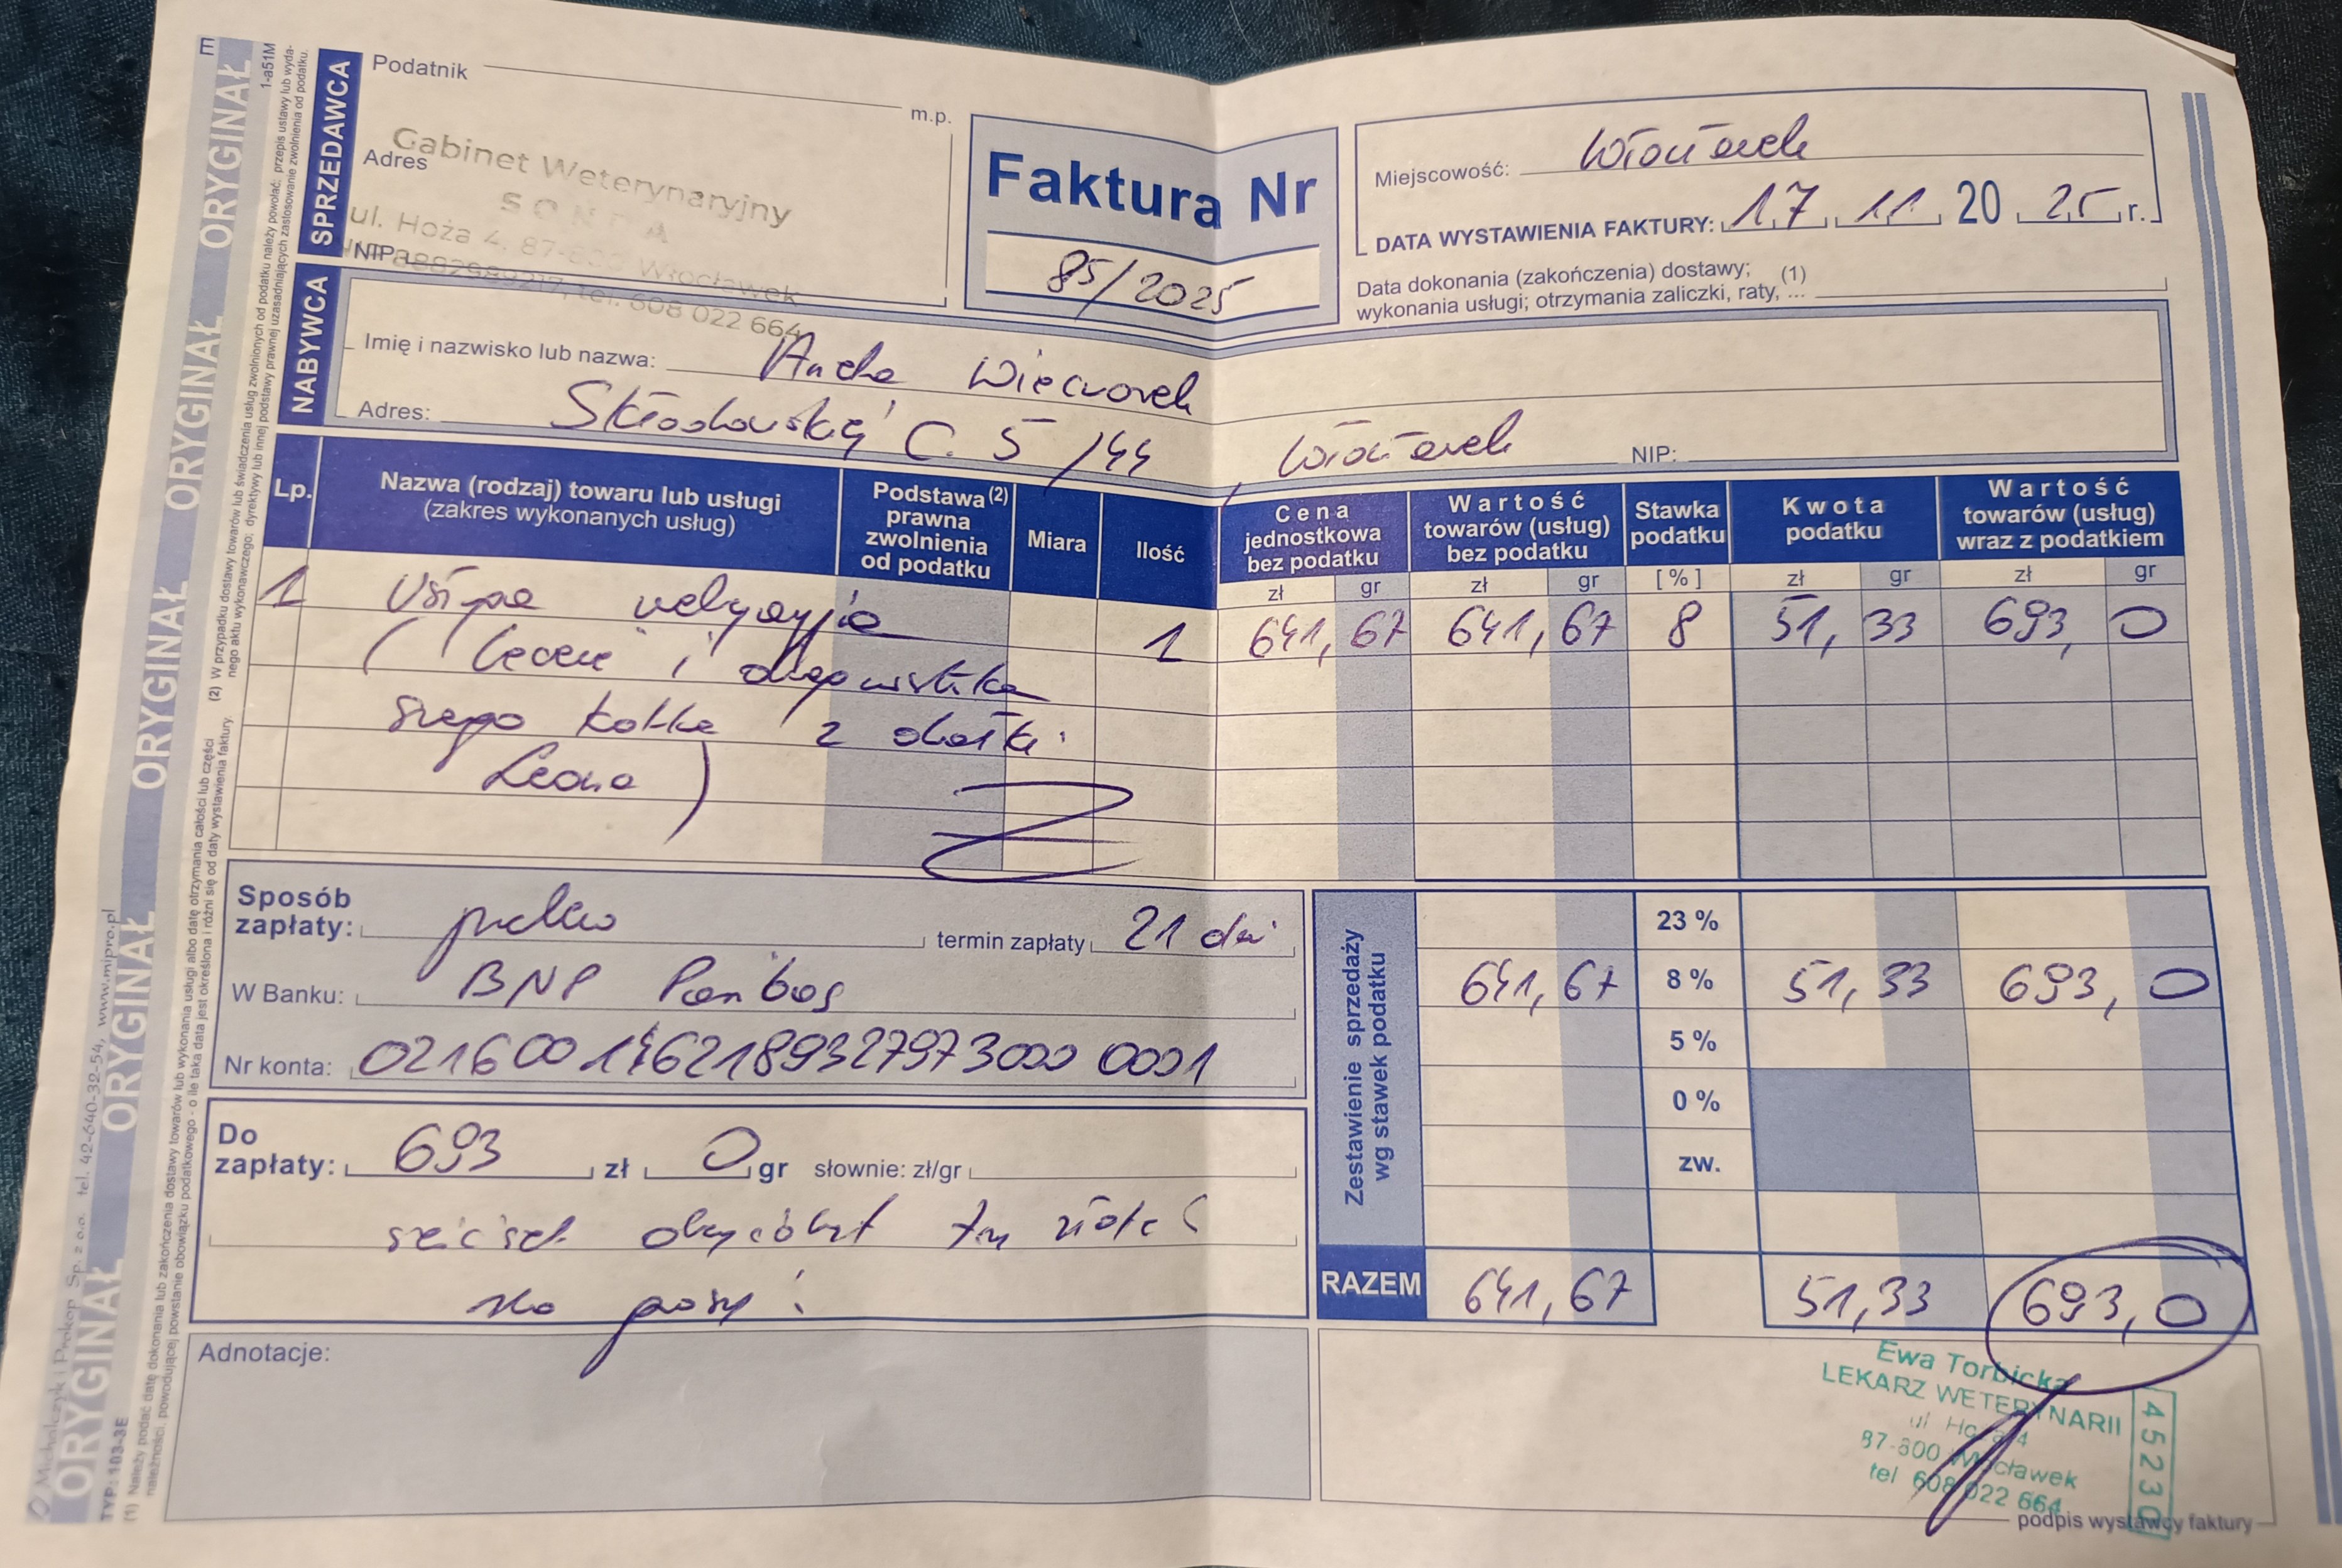 E
1-a51M
ORYGINAŁ ORYGINAŁ ORYGINAŁ ORYGINAŁ ORYGINAŁ ORYGINAŁ
SPRZEDAWCA
Podatnik
m.p.
Adres
NIP
Gabinet Weterynaryjny
SONDA
ul. Hoża 4, 87-800 Włocławek
tel. 608 022 664
Faktura Nr
85/2025
Miejscowość: Włocławek
DATA WYSTAWIENIA FAKTURY: 17 11 20 25 r.
Data dokonania (zakończenia) dostawy; (1)
wykonania usługi; otrzymania zaliczki, raty, ...
NABYWCA
Imię i nazwisko lub nazwa: Wieczorek
Adres: Skłodowskiej C. 5/44, Włocławek NIP:
Lp. Nazwa (rodzaj) towaru lub usługi (zakres wykonanych usług) Podstawa (2) prawna zwolnienia od podatku Miara Ilość Cena jednostkowa bez podatku Wartość towarów (usług) bez podatku Stawka podatku Kwota podatku Wartość towarów (usług) wraz z podatkiem
zł gr zł gr [%] zł gr zł gr
1 Usługa 1 641,67 641,67 8 51,33 693,0
(leczenie i diagnostyka
kotka z działki
Leona)
Sposób zapłaty: przelew termin zapłaty 21 dni
W Banku: BNP Paribas
Nr konta:
Do zapłaty: 693 zł 0 gr słownie: zł/gr
sześćset dziewięćdziesiąt trzy złote
zero groszy
Adnotacje:
Zestawienie sprzedaży wg stawek podatku
23 %
641,67 8 % 51,33 693,0
5 %
0 %
zw.
RAZEM 641,67 51,33 693,0
Ewa Torbicka
LEKARZ WETERYNARII
ul. Hoża 4
87-800 Włocławek
tel 608 022 664
45230
podpis wystawcy faktury
Michalczyk i Prokop Sp. z o.o. tel. 42-640-32-54, www.mipro.pl
TYP: 103-3E
(1) Należy podać datę dokonania lub zakończenia dostawy towarów lub wykonania usługi albo datę otrzymania całości lub części
należności, powodującej powstanie obowiązku podatkowego - o ile taka data jest określona i różni się od daty wystawienia faktury.
(2) W przypadku dostawy towarów lub świadczenia usług zwolnionych od podatku należy powołać: przepis ustawy lub wyda-
nego aktu wykonawczego; dyrektywy lub innej podstawy prawnej uzasadniających zastosowanie zwolnienia od podatku.